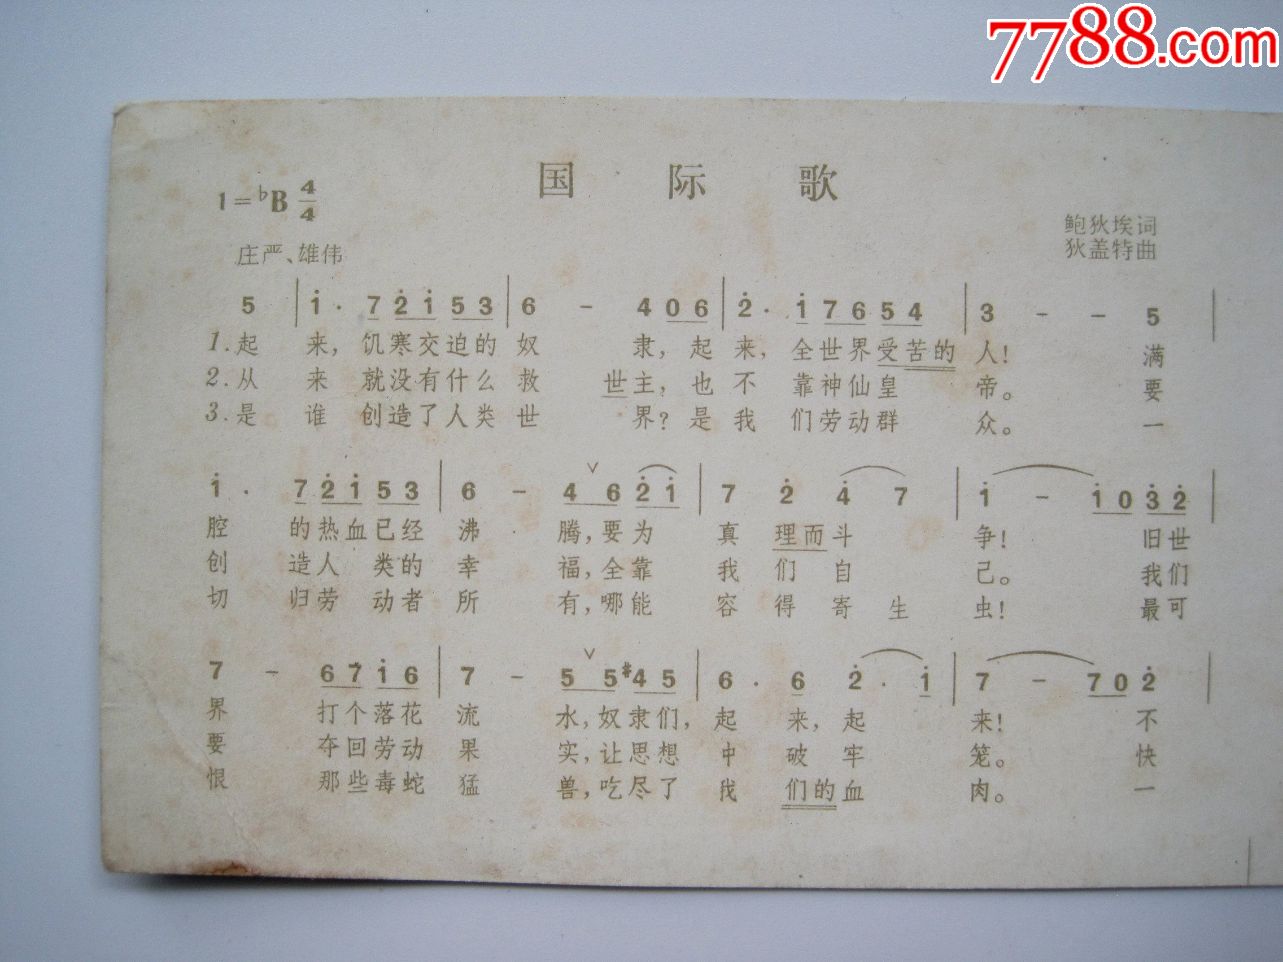 7788.com
国 际 歌
1=♭B 4/4
鲍狄埃词
狄盖特曲
庄严、雄伟
5 | i· 7 2̇ i 5 3 | 6 - 4 0 6 | 2̇· i 7 6 5 4 | 3 - - 5 |
1.起 来, 饥寒交迫的奴 隶, 起 来, 全世界受苦的 人! 满
2.从 来 就没有什么 救 世主, 也 不 靠神仙皇 帝。 要
3.是 谁 创造了人类 世 界? 是 我 们劳动群 众。 一
i· 7 2̇ i 5 3 | 6 - 4 6 2̇ i | 7 2̇ 4̇ 7 | i - i 0 3̇ 2̇ |
腔 的热血已经 沸 腾, 要为 真 理而斗 争! 旧世
创 造人 类的 幸 福, 全靠 我 们 自 己。 我们
切 归劳 动者 所 有, 哪能 容 得 寄 生 虫! 最可
7 - 6 7 i 6 | 7 - 5 5 #4 5 | 6· 6 2̇· i | 7 - 7 0 2̇ |
界 打个落花 流 水, 奴隶们, 起 来, 起 来! 不
要 夺回劳动 果 实, 让思想 冲 破 牢 笼。 快
恨 那些毒蛇 猛 兽, 吃尽了 我 们的血 肉。 一